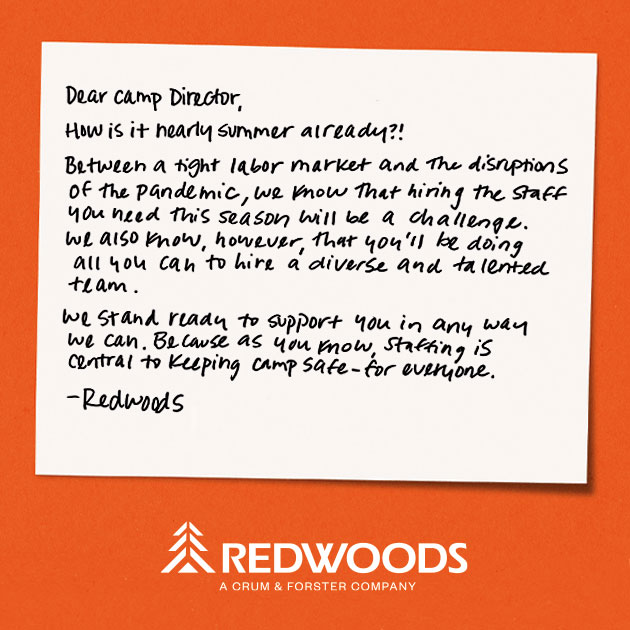 Dear Camp Director,
How is it nearly summer already?!
Between a tight labor market and the disruptions
of the pandemic, we know that hiring the staff
you need this season will be a challenge.
We also know, however, that you'll be doing
all you can to hire a diverse and talented
team.
We stand ready to support you in any way
we can. Because as you know, staffing is
central to keeping camp safe-for everyone.
-Redwoods
REDWOODS
A CRUM & FORSTER COMPANY